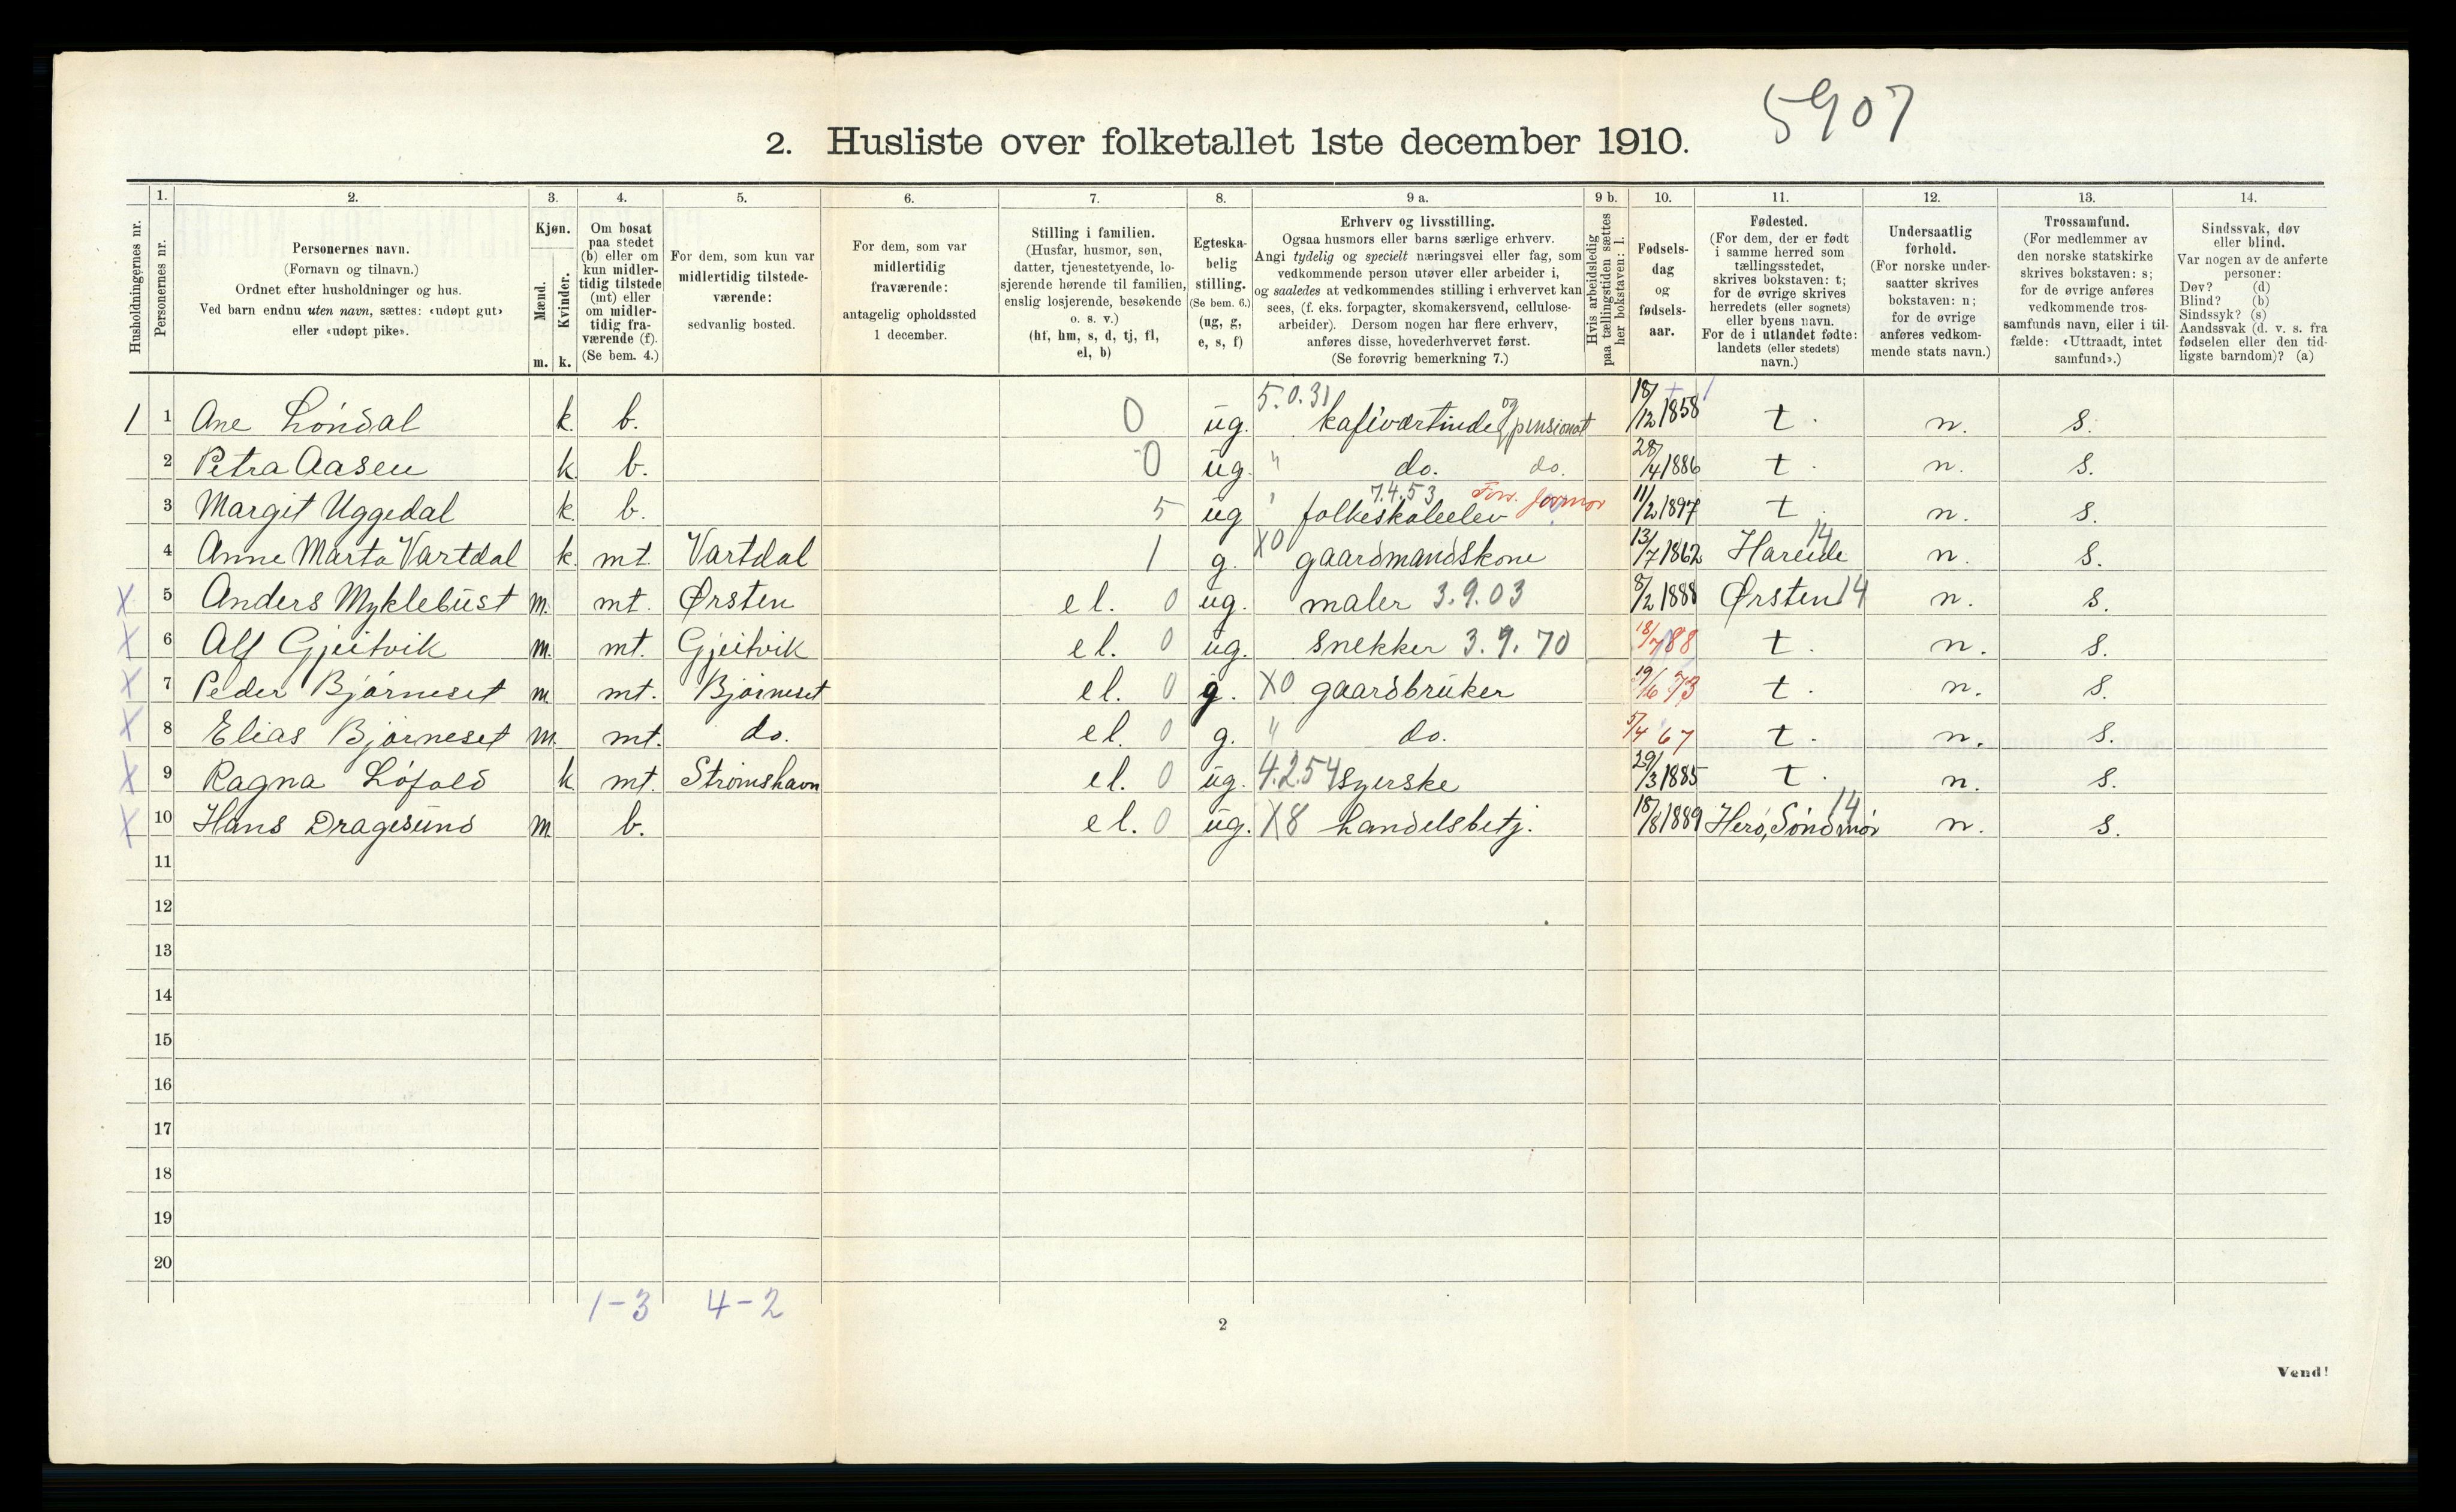 5907
2. Husliste over folketallet 1ste december 1910.
Husholdningernes nr.
1. Personernes nr.
2. Personernes navn. (Fornavn og tilnavn.) Ordnet efter husholdninger og hus. Ved barn endnu uten navn, sættes: «udøpt gut» eller «udøpt pike».
3. Kjøn. Mænd. m. Kvinder. k.
4. Om bosat paa stedet (b) eller om kun midlertidig tilstede (mt) eller om midlertidig fraværende (f). (Se bem. 4.)
5. For dem, som kun var midlertidig tilstedeværende: sedvanlig bosted.
6. For dem, som var midlertidig fraværende: antagelig opholdssted 1 december.
7. Stilling i familien. (Husfar, husmor, søn, datter, tjenestetyende, losjerende hørende til familien, enslig losjerende, besøkende o. s. v.) (hf, hm, s, d, tj, fl, el, b)
8. Egteskabelig stilling. (Se bem. 6.) (ug, g, e, s, f)
9 a. Erhverv og livsstilling. Ogsaa husmors eller barns særlige erhverv. Angi tydelig og specielt næringsvei eller fag, som vedkommende person utøver eller arbeider i, og saaledes at vedkommendes stilling i erhvervet kan sees, (f. eks. forpagter, skomakersvend, cellulosearbeider). Dersom nogen har flere erhverv, anføres disse, hovederhvervet først. (Se forøvrig bemerkning 7.)
9 b. Hvis arbeidsledig paa tællingstiden sættes her bokstaven: l.
10. Fødselsdag og fødselsaar.
11. Fødested. (For dem, der er født i samme herred som tællingsstedet, skrives bokstaven: t; for de øvrige skrives herredets (eller sognets) eller byens navn. For de i utlandet fødte: landets (eller stedets) navn.)
12. Undersaatlig forhold. (For norske undersaatter skrives bokstaven: n; for de øvrige anføres vedkommende stats navn.)
13. Trossamfund. (For medlemmer av den norske statskirke skrives bokstaven: s; for de øvrige anføres vedkommende trossamfunds navn, eller i tilfælde: «Uttraadt, intet samfund».)
14. Sindssvak, døv eller blind. Var nogen av de anførte personer: Døv? (d) Blind? (b) Sindssyk? (s) Aandssvak (d. v. s. fra fødselen eller den tidligste barndom)? (a)
1 1 Ane Lóndal k. b. 0 ug. 5.0.31 kafeværtinde og pensionat 18/12 1858 t. n. s.
2 Petra Aasen k. b. 0 ug. " do. do. 28/4 1886 t. n. s.
3 Margit Uggedal k. b. 5 ug " folkeskoleelev 7.4.53 Fors. 11/2 1897 t. n. s.
4 Anne Marta Vartdal k. mt. Vartdal 1 g. X0 gaardmandskone 13/7 1862 Hareide 14 n. s.
X 5 Anders Myklebust m. mt. Ørsten el. 0 ug. maler 3.9.03 8/2 1888 Ørsten 14 n. s.
X 6 Alf Gjeitvik m. mt. Gjeitvik el. 0 ug. snekker 3.9.70 18/7 88 t. n. s.
X 7 Peder Bjórneset m. mt. Bjórneset el. 0 g. X0 gaardbruker 19/6 73 t. n. s.
X 8 Elias Bjórneset m. mt. do. el. 0 g. " do. 5/4 67 t. n. s.
X 9 Ragna Lófold k mt. Strómshavn el. 0 ug. 4.2.54 syerske 29/3 1885 t. n. s.
X 10 Hans Dragesund m. b. el. 0 ug. X8 handelsbetj. 18/8 1889 Heró, Sóndmór 14 n. s.
11
12
13
14
15
16
17
18
19
20
1-3 4-2
2
Vend!